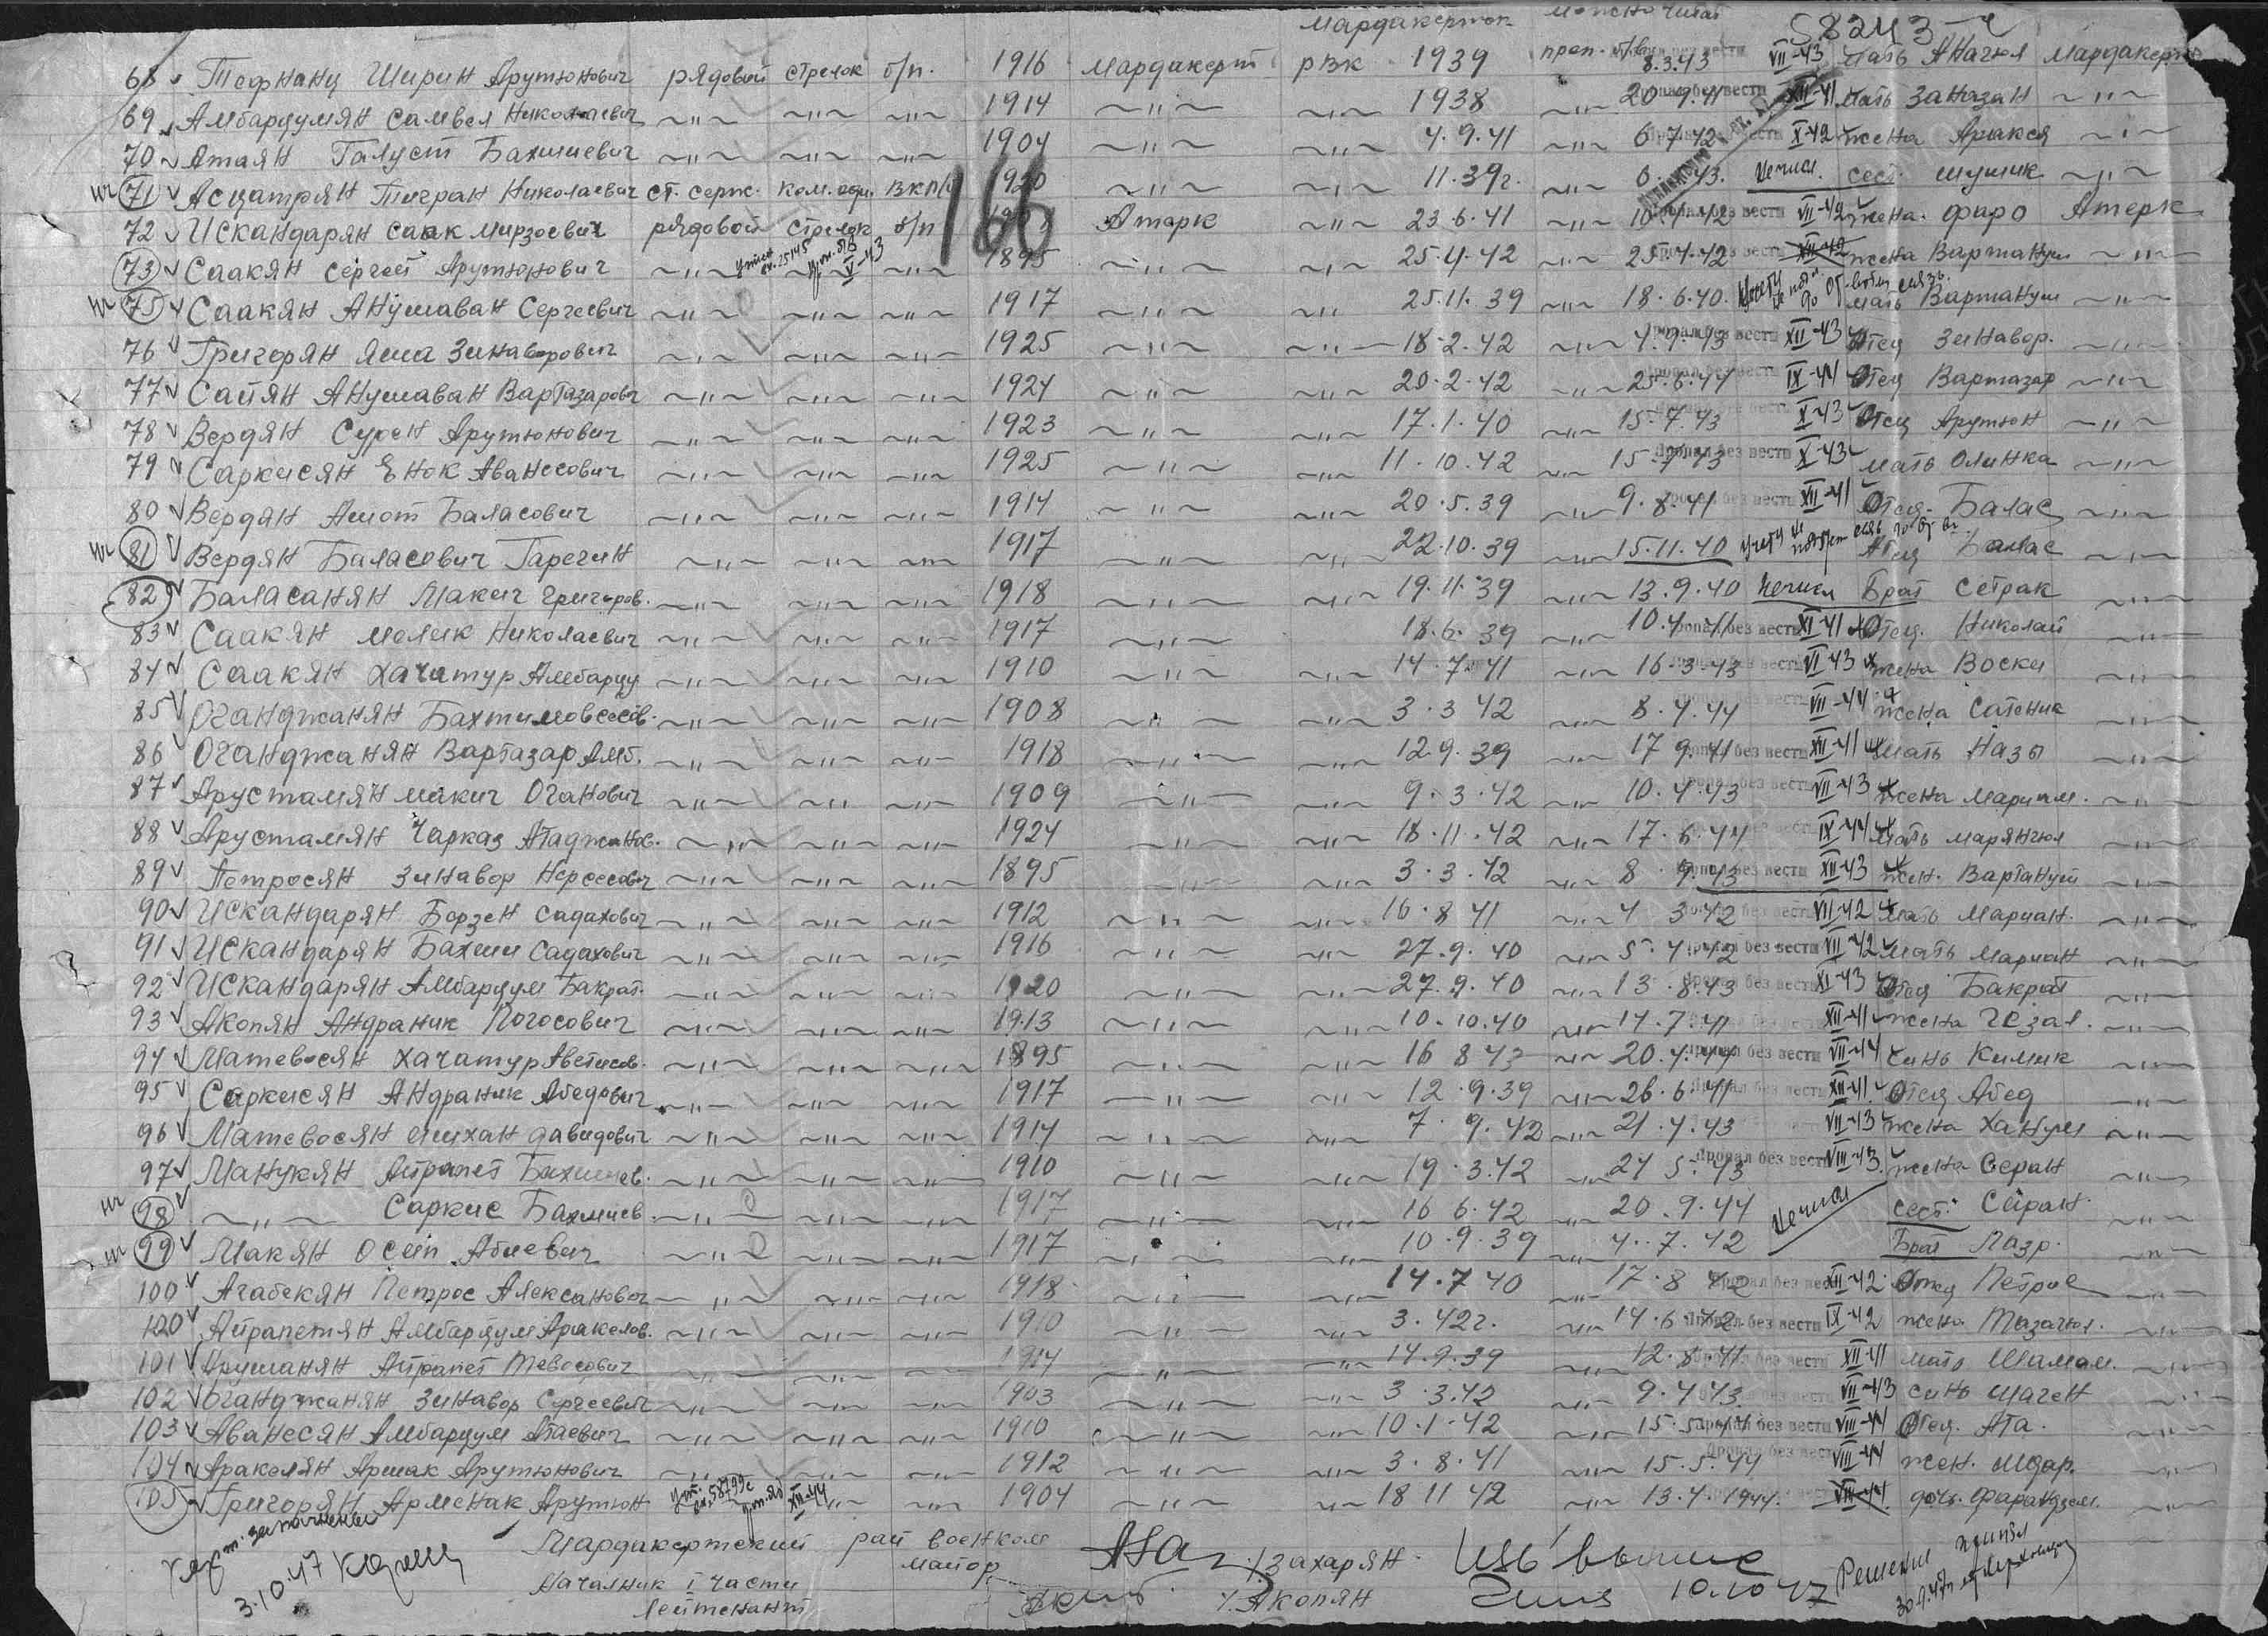 Мардакерток можно читат 58243-с
68 Тефнанц Ширин Арутюнович рядовой стрелок б/п. 1916 Мардакерт рвк 1939 проп. б/в 8.3.43 VII-43 мать Анагюл Мардакерт
69 Амбарцумян Самвел Николаевич ~"~ ~"~ ~"~ 1914 ~"~ ~"~ 1938 ~"~ 20.9.41 XII-41 мать Заназан ~"~
70 Атаян Галуст Бахшиевич ~"~ ~"~ ~"~ 1904 ~"~ ~"~ 4.9.41 ~"~ 6.7.42 X-42 жена Аракся ~"~
71 Асцатрян Тигран Николаевич ст. серж. ком. отд. ВКП/б 1920 ~"~ ~"~ 11.39г. ~"~ 43. сест. Шушик ~"~
166
72 Искандарян Саак Мирзоевич рядовой стрелок б/п Атерк ~"~ 23.6.41 ~"~ 10.4.42 VII-42 жена. Фаро Атерк
73 Саакян Сергей Арутюнович ~"~ V-43 ~"~ 1895 ~"~ ~"~ 25.4.42 ~"~ 25.4.42 VII-42 жена Вартануш ~"~
75 Саакян Анушаван Сергеевич ~"~ ~"~ ~"~ 1917 ~"~ ~"~ 25.11.39 ~"~ 18.6.40. мать Вартануш ~"~
76 Григорян Яша Зинаворович ~"~ ~"~ ~"~ 1925 ~"~ ~"~ 18.2.42 ~"~ 4.9.43 XII-43 Отец Зинавор. ~"~
77 Саиян Анушаван Вартазарович ~"~ ~"~ ~"~ 1924 ~"~ ~"~ 20.2.42 ~"~ 25.6.44 IX-44 Отец Вартазар ~"~
78 Вердян Сурен Арутюнович ~"~ ~"~ ~"~ 1923 ~"~ ~"~ 17.1.40 ~"~ 15.7.43 X-43 Отец Арутюн ~"~
79 Саркисян Енок Аванесович ~"~ ~"~ ~"~ 1925 ~"~ ~"~ 11.10.42 ~"~ 15.7.43 X-43 мать Олинка ~"~
80 Вердян Ашот Баласович ~"~ ~"~ ~"~ 1914 ~"~ ~"~ 20.5.39 ~"~ 9.8.41 XII-41 Отец. Балас ~"~
81 Вердян Баласович Гарегин ~"~ ~"~ ~"~ 1917 ~"~ ~"~ 22.10.39 ~"~ 15.11.40 Отец Балас ~"~
82 Баласанян Макич Григоров. ~"~ ~"~ ~"~ 1918 ~"~ ~"~ 19.11.39 ~"~ 13.9.40 Брат Сетрак ~"~
83 Саакян Мелик Николаевич ~"~ ~"~ ~"~ 1917 ~"~ ~"~ 18.6.39 ~"~ 10.4.41 Пропал без вести XI-41 Отец. Николай ~"~
84 Саакян Хачатур Амбарцу ~"~ ~"~ ~"~ 1910 ~"~ ~"~ 14.7.41 ~"~ 16.3.43 VI-43 жена Воски ~"~
85 Оганджанян Бахтимовсесов. ~"~ ~"~ ~"~ 1908 ~"~ ~"~ 3.3.42 ~"~ 8.4.44 VII-44 жена Сатеник ~"~
86 Оганджанян Вартазар Амб. ~"~ ~"~ ~"~ 1918 ~"~ ~"~ 12.9.39 ~"~ 17.9.41 Пропал без вести XII-41 мать Назы ~"~
87 Арустамян Макич Оганович ~"~ ~"~ ~"~ 1909 ~"~ ~"~ 9.3.42 ~"~ 10.4.43 VII-43 жена Мариам. ~"~
88 Арустамян Чарказ Атаджанов. ~"~ ~"~ ~"~ 1924 ~"~ ~"~ 18.11.42 ~"~ 17.6.44 IX-44 мать Марянгюл ~"~
89 Петросян Зинавор Нерсесович ~"~ ~"~ ~"~ 1895 ~"~ ~"~ 3.3.42 ~"~ 8.9.43 XII-43 жен. Вартануш ~"~
90 Искандарян Борзен Садахович ~"~ ~"~ ~"~ 1912 ~"~ ~"~ 16.8.41 ~"~ 4.3.42 VII-42 мать Мариан. ~"~
91 Искандарян Бахши Садахович ~"~ ~"~ ~"~ 1916 ~"~ ~"~ 27.9.40 ~"~ 5.4.42 Пропал без вести VII-42 мать Мариан ~"~
92 Искандарян Амбарцум Бакрат. ~"~ ~"~ ~"~ 1920 ~"~ ~"~ 27.9.40 ~"~ 13.8.43 XI-43 Отец Бакрат ~"~
93 Акопян Андраник Погосович ~"~ ~"~ ~"~ 1913 ~"~ ~"~ 10.10.40 ~"~ 14.7.41 XII-41 жена Гезал. ~"~
94 Матевосян Хачатур Аветисов. ~"~ ~"~ ~"~ 1895 ~"~ ~"~ 16 8 43 ~"~ 20.4.44 Пропал без вести VII-44 синь Кимик ~"~
95 Саркисян Андраник Абедович ~"~ ~"~ ~"~ 1917 ~"~ ~"~ 12.9.39 ~"~ 26.6.41 XII-41 Отец Абед ~"~
96 Матевосян Ишхан Давидович ~"~ ~"~ ~"~ 1914 ~"~ ~"~ 7.9.42 ~"~ 21.4.43 VII-43 жена Ханум ~"~
97 Манукян Айрапет Бахшиев. ~"~ ~"~ ~"~ 1910 ~"~ ~"~ 19.3.42 ~"~ 24 5.43 Пропал без вести VIII-43. жена Серан ~"~
98 ~"~ Саркис Бахшиев. ~"~ ~"~ ~"~ 1917 ~"~ ~"~ 16 6.42 ~"~ 20.9.44 сест. Сиран. ~"~
99 Макян Осип Абиевич ~"~ ~"~ 1917 ~"~ ~"~ 10.9.39 ~"~ 4.7.42 Брат Лазр. ~"~
100 Агабекян Петрос Алексанович ~"~ ~"~ ~"~ 1918 ~"~ ~"~ 14.7 40 ~"~ 17.8 42 XII-42 Отец Петрос ~"~
100 Айрапетян Амбарцум Аракелов. ~"~ ~"~ ~"~ 1910 ~"~ ~"~ 3.42г. ~"~ 14.6.42 IX-42 жена Тазагюл. ~"~
101 Арушанян Айрапет Тевосович ~"~ ~"~ ~"~ 1914 ~"~ ~"~ 14.9.39 ~"~ 12.8.41 XII-41 мать Шамам. ~"~
102 Оганджанян Зинавор Сергеевич ~"~ ~"~ ~"~ 1903 ~"~ ~"~ 3.3.42 ~"~ 9.4.43. VII-43 синь Шаген ~"~
103 Аванесян Амбарцум Атаевич ~"~ ~"~ ~"~ 1910 ~"~ ~"~ 10.1.42 ~"~ 15.5.44 VIII-44 Отец. Ата. ~"~
104 Аракелян Аршак Арутюнович ~"~ ~"~ ~"~ 1912 ~"~ ~"~ 3.8.41 ~"~ 15.5.44 VIII-44 жен. ~"~
105 Григорян Арменак Арутюн XII-44 ~"~ ~"~ 1904 ~"~ ~"~ 18 11 42 ~"~ 13.4.1944. VIII-44. дочь. Фарандзем.
Мардакертский рай военком
майор /Захарян.
Началник I части
Лейтенант /Акопян
3.10.47
10.10 47 Решения принял